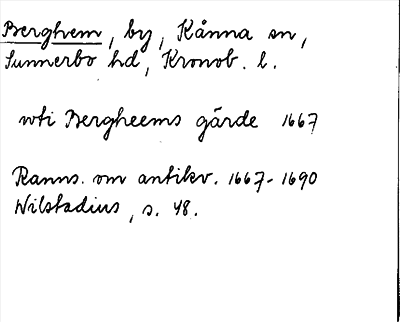 Berghem, by, Kånna sn,
Sunnerbo hd, Kronob. l.
uti Bergheems gärde 1667
Ranns. om antikv. 1667-1690
Wilstadius, s. 48.